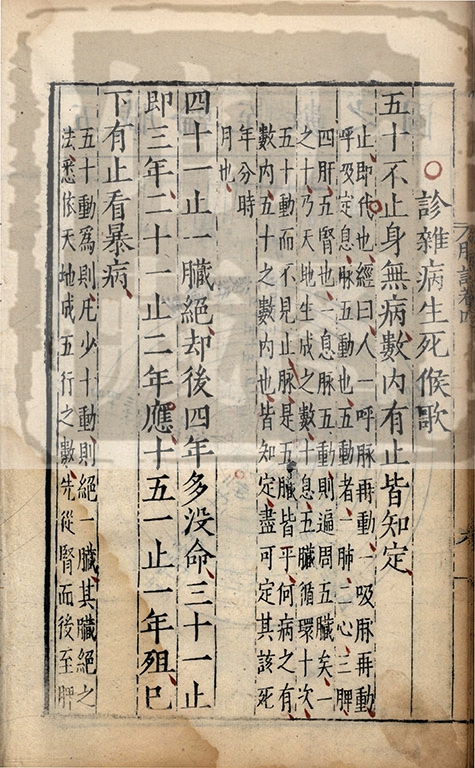 診雜病生死候歌
五十不止身無病數内有止皆知定
止即代也經曰人一呼脉再動一吸脉再動
呼吸定息脉五動也五動者一肺二心三脾
四肝五腎也一息脉五動則遍周五臟矣一
之十乃天地生成之數十息五臟循環十次
五十動而不見止脉是五臟皆平何病之有
數内五十之數内也皆知定盡可定其該死
年分時
月也
四十一止一臟絕却後四年多没命三十一止
即三年二十一止二年應十五一止一年殂巳
下有止看暴病
五十動為則凡少十動則絕一臟其臟絕之
法悉依天地成五行之數先從腎而後至脾